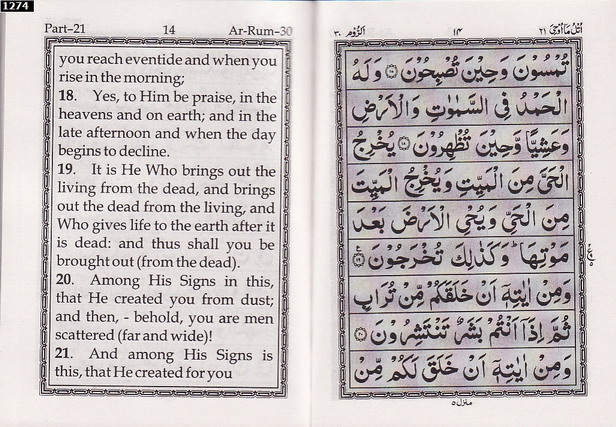 1274
Part-21 14 Ar-Rum-30
you reach eventide and when you
rise in the morning;
18. Yes, to Him be praise, in the
heavens and on earth; and in the
late afternoon and when the day
begins to decline.
19. It is He Who brings out the
living from the dead, and brings
out the dead from the living, and
Who gives life to the earth after it
is dead: and thus shall you be
brought out (from the dead).
20. Among His Signs in this,
that He created you from dust;
and then, - behold, you are men
scattered (far and wide)!
21. And among His Signs is
this, that He created for you
اُتْلُ مَآ اُوْحِیَ ۲۱ ۱۴ اَلرُّوْم ۳۰
تُمْسُوْنَ وَحِيْنَ تُصْبِحُوْنَ ۝۱۷ وَلَهُ
الْحَمْدُ فِى السَّمٰوٰتِ وَالْاَرْضِ
وَعَشِيًّا وَّحِيْنَ تُظْهِرُوْنَ ۝۱۸ يُخْرِجُ
الْحَىَّ مِنَ الْمَيِّتِ وَيُخْرِجُ الْمَيِّتَ
مِنَ الْحَىِّ وَيُحْىِ الْاَرْضَ بَعْدَ
مَوْتِهَا ؕ وَكَذٰلِكَ تُخْرَجُوْنَ ۝۱۹
وَمِنْ اٰيٰتِهٖۤ اَنْ خَلَقَكُمْ مِّنْ تُرَابٍ
ثُمَّ اِذَاۤ اَنْتُمْ بَشَرٌ تَنْتَشِرُوْنَ ۝۲۰
وَمِنْ اٰيٰتِهٖۤ اَنْ خَلَقَ لَكُمْ مِّنْ
منزل ۵